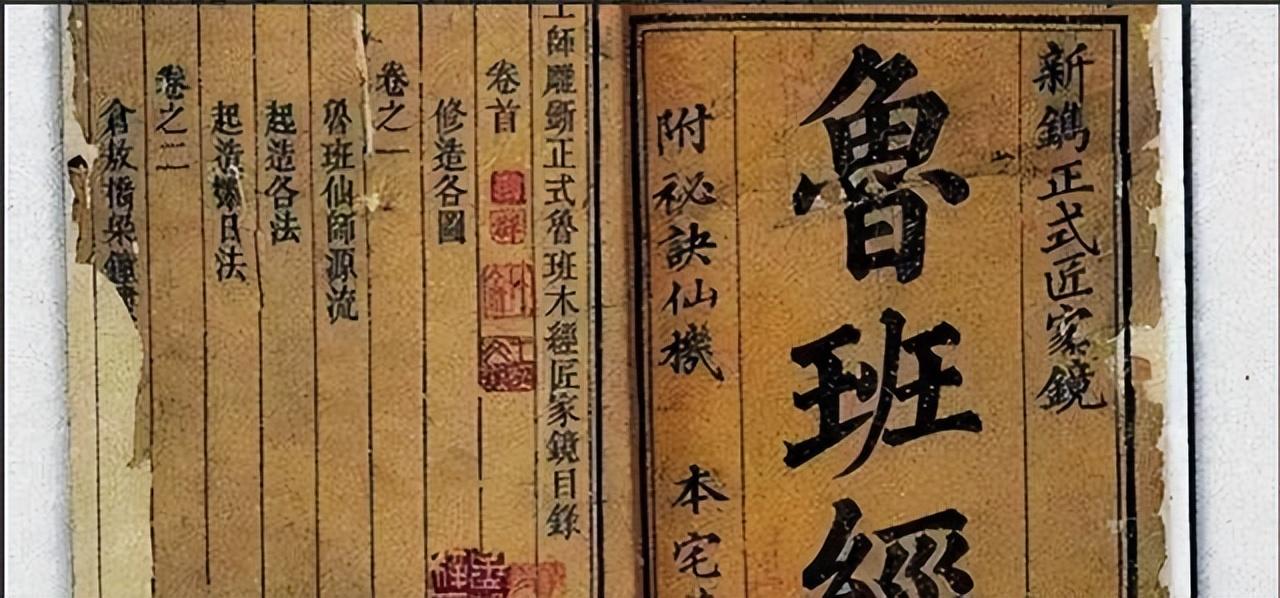 新鐫正式匠家鏡
魯班經
附祕訣仙機
本宅
師雕斵正式魯班木經匠家鏡目錄
卷首
修造各圖
卷之一
魯班仙師源流
起造各法
起造
日法
卷之二
倉敖橋梁鐘